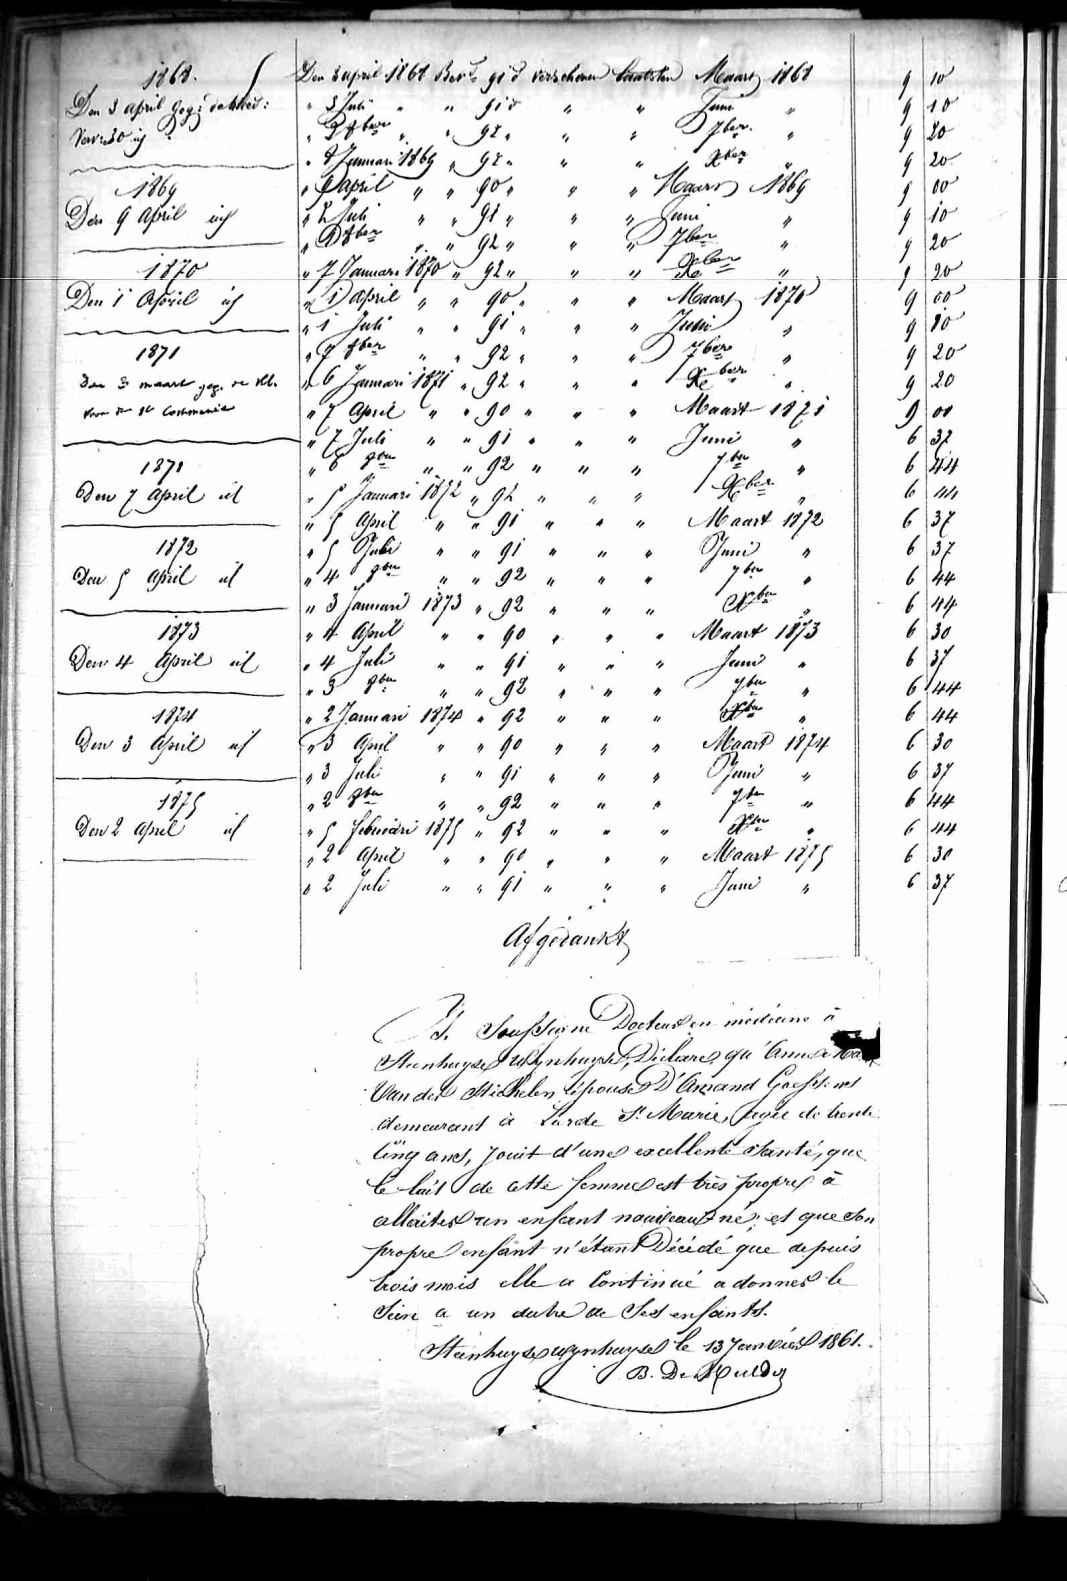 1868.
Den 3 april geg:
1869
Den 9 April
1870
Den 1 April
1871
Den 3 maart geg. de kl.
voor de 1e Communie
1871
Den 7 April id
1872
Den 5 April id
1873
Den 4 April id
1874
Den 3 April id
1875
Den 2 April id
Den 3 april 1868 Bet. 91 d verschenen laatsten Maart 1868 9 10
" 3 Juli " " 91 d " " Juni " 9 10
" 2 8ber " " 92 " " " 7ber " 9 20
" 8 Januari 1869 " 92 " " " Xber " 9 20
" 9 April " " 90 " " " Maart 1869 9 00
" 2 Juli " " 91 " " " Juni " 9 10
" 8ber " " 92 " " " 7ber " 9 20
" 7 Januari 1870 " 92 " " " Xber " 9 20
" 1 April " " 90 " " " Maart 1870 9 00
" 1 Juli " " 91 " " " Juni " 9 10
" 7 8ber " " 92 " " " 7ber " 9 20
" 6 Januari 1871 " 92 " " " Xber " 9 20
" 7 April " " 90 " " " Maart 1871 9 00
" 7 Juli " " 91 " " " Juni " 6 37
" 6 8ber " " 92 " " " 7ber " 6 44
" 5 Januari 1872 " 92 " " " Xber " 6 44
" 5 April " " 91 " " " Maart 1872 6 37
" 5 Juli " " 91 " " " Juni " 6 37
" 4 8ber " " 92 " " " 7ber " 6 44
" 3 Januari 1873 " 92 " " " Xber " 6 44
" 4 April " " 90 " " " Maart 1873 6 30
" 4 Juli " " 91 " " " Juni " 6 37
" 3 8ber " " 92 " " " 7ber " 6 44
" 2 Januari 1874 " 92 " " " Xber " 6 44
" 3 April " " 90 " " " Maart 1874 6 30
" 3 Juli " " 91 " " " Juni " 6 37
" 2 8ber " " 92 " " " 7ber " 6 44
" 5 februari 1875 " 92 " " " Xber " 6 44
" 2 April " " 90 " " " Maart 1875 6 30
" 2 Juli " " 91 " " " Juni " 6 37
Afgedankt
Je Soussigné Docteur en médecine à
Steenhuyse Wynhuyse, Déclare qu'Anne
Van der Stichelen épouse D'Amand Goessens
demeurant à Lierde Ste Marie, agée de trente
cinq ans, jouit d'une excellente santé, que
le lait de cette femme est très propre à
allaiter un enfant nouveau né; et que son
propre enfant n'étant Décédé que depuis
trois mois elle a continué a donner le
Sein a un autre de Ses enfants.
Steinhuyse wynhuyse le 13 Janvier 1861.
B. De Mulder